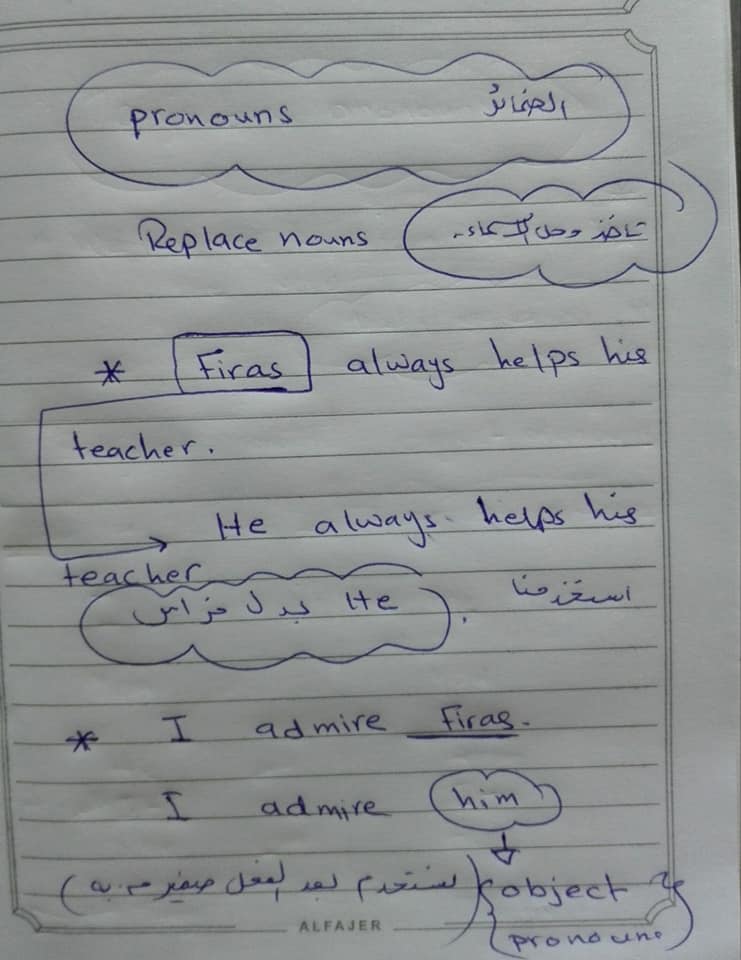 pronouns الضمائر
Replace nouns تأخذ محل الأسماء
* Firas always helps his
teacher.
He always helps his
teacher
استخدمنا He بدل فراس.
* I admire Firas.
I admire him
object (نستخدم بعد الفعل ضمير م. به)
pronouns
ALFAJER